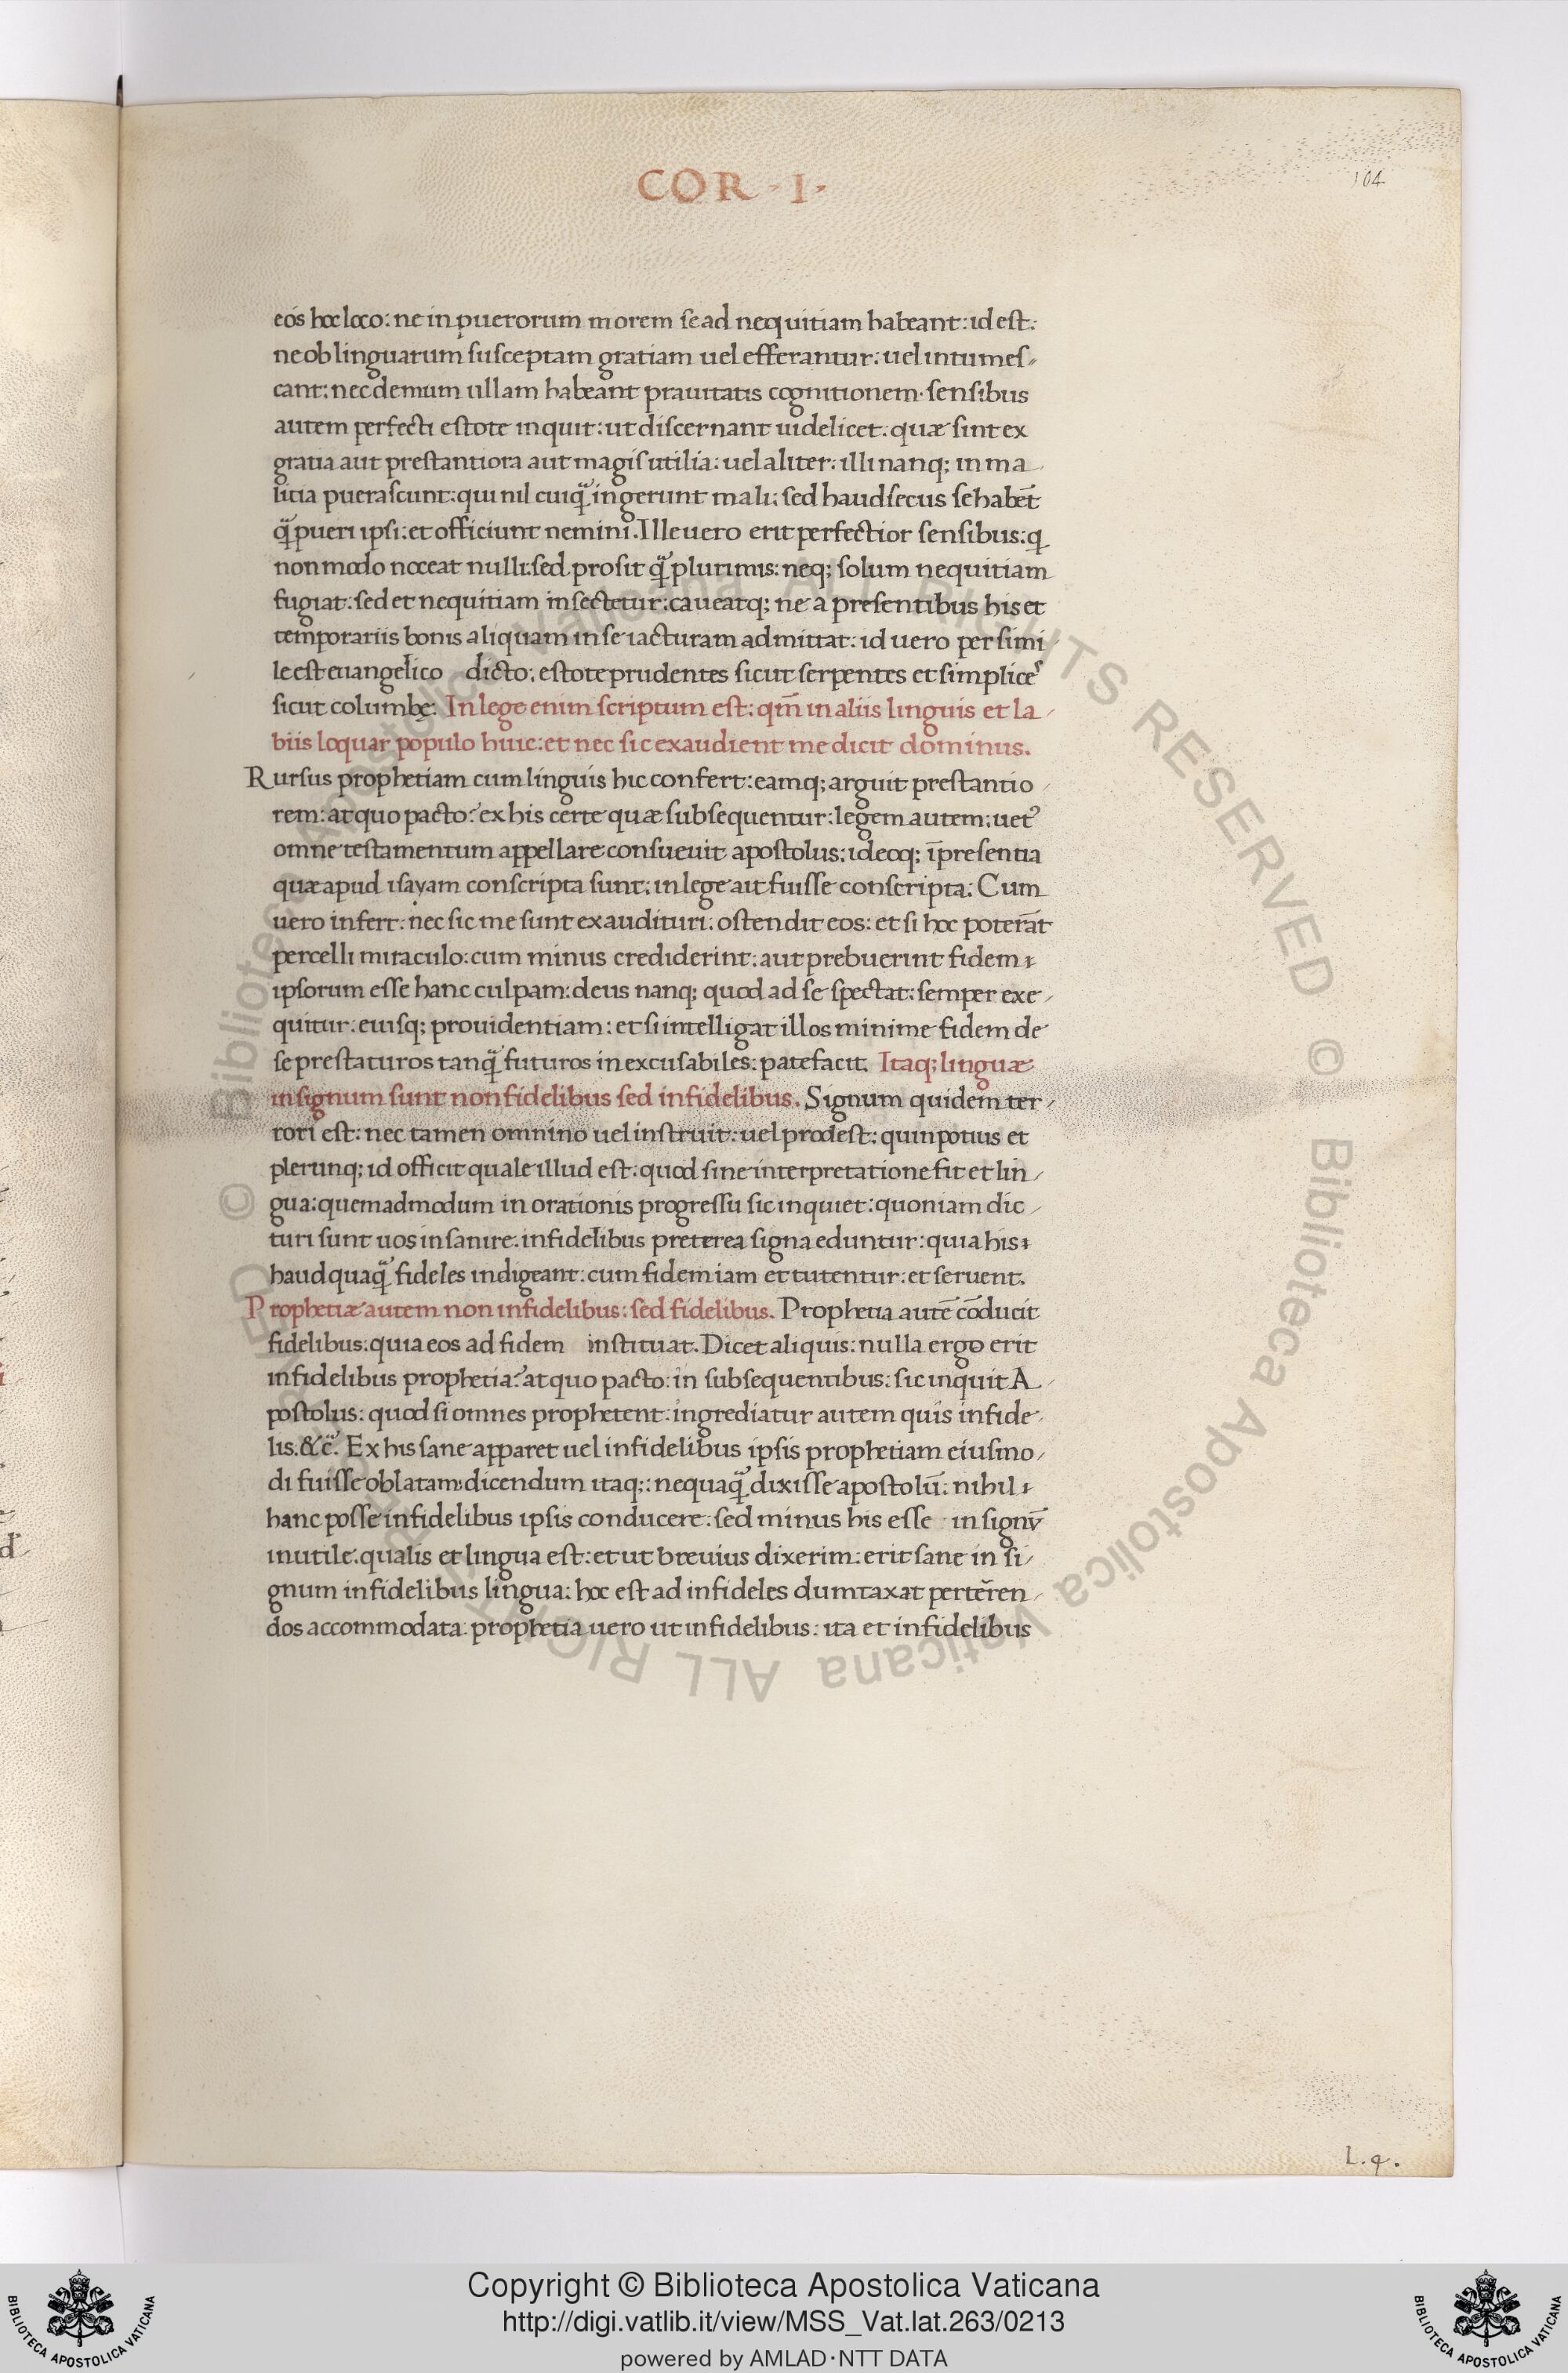 COR · I ·
104
eos hoc loco: ne in puerorum morem se ad nequitiam habeant: id est:
ne ob linguarum susceptam gratiam uel efferantur: uel intumes-
cant: nec demum ullam habeant prauitatis cognitionem· sensibus
autem perfecti estote inquit: ut discernant uidelicet: quæ sint ex
gratia aut prestantiora aut magis utilia: uel aliter: illi nanq; in ma-
litia puerascunt: qui nil cuiq̃ ingerunt mali: sed haud secus se habēt
q̃ pueri ipsi: et officiunt nemini. Ille uero erit perfectior sensibus: q
non modo noceat nulli: sed prosit q̃ plurimis: neq; solum nequitiam
fugiat: sed et nequitiam insectetur: caueatq; ne a presentibus his et
temporariis bonis aliquam in se iacturam admittat: id uero per simi-
le est euangelico dicto: estote prudentes sicut serpentes et simplices
sicut columbę. In lege enim scriptum est: qm̄ in aliis linguis et la-
biis loquar populo huic: et nec sic exaudient me dicit dominus.
Rursus prophetiam cum linguis hic confert: eamq; arguit prestantio-
rem: at quo pacto? ex his certe quæ subsequentur: legem autem: uet᾽
omne testamentum appellare consueuit apostolus: ideoq; ī presentia
quæ apud isayam conscripta sunt: in lege ait fuisse conscripta: Cum
uero infert: nec sic me sunt exaudituri: ostendit eos: et si hoc poterāt
percelli miraculo: cum minus crediderint: aut prebuerint fidem
ipsorum esse hanc culpam: deus nanq; quod ad se spectat: semper exe-
quitur: euisq; prouidentiam: et si intelligat illos minime fidem de
se prestaturos tanq̃ futuros inexcusabiles: patefacit. Itaq; linguæ
in signum sunt non fidelibus sed infidelibus. Signum quidem ter-
rori est: nec tamen omnino uel instruit: uel prodest: quin potius et
plerunq; id officit quale illud est: quod sine interpretatione fit et lin-
gua: quemadmodum in orationis progressu sic inquiet: quoniam dic-
turi sunt uos insanire: infidelibus preterea signa eduntur: quia his
haud quaq̃ fideles indigeant: cum fidem iam et tutentur: et seruent.
Prophetiæ autem non infidelibus: sed fidelibus. Prophetia autē cōducit
fidelibus: quia eos ad fidem instituat. Dicet aliquis: nulla ergo erit
infidelibus prophetia? at quo pacto: in subsequentibus: sic inquit A-
postolus: quod si omnes prophetent: ingrediatur autem quis infide-
lis. &c̃. Ex his sane apparet uel infidelibus ipsis prophetiam eiusmo-
di fuisse oblatam: dicendum itaq;: nequaq̃ dixisse apostolū: nihil
hanc posse infidelibus ipsis conducere: sed minus his esse in signv̄
inutile: qualis et lingua est: et ut breuius dixerim: erit sane in si-
gnum infidelibus lingua: hoc est ad infideles dumtaxat perter̄ren-
dos accommodata: prophetia uero ut infidelibus: ita et infidelibus
L.q.
Copyright © Biblioteca Apostolica Vaticana
http://digi.vatlib.it/view/MSS_Vat.lat.263/0213
powered by AMLAD·NTT DATA